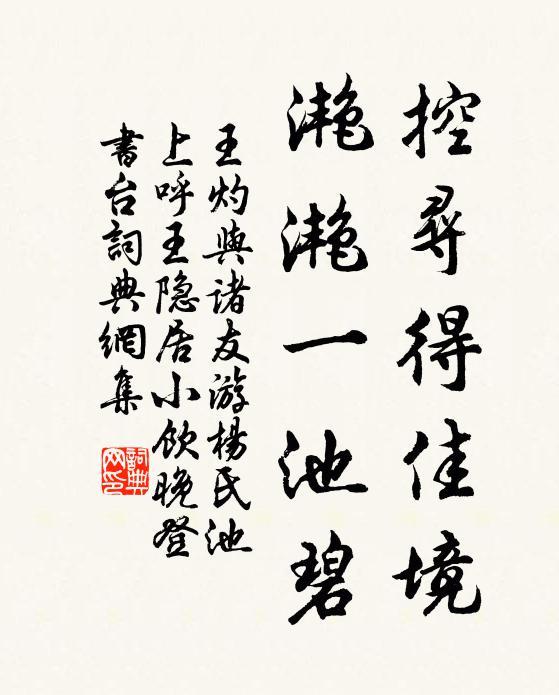 控尋得佳境
灔灔一池碧
王灼與諸友游楊氏池
上呼王隐居小飲晚登
書台詞典網集
詞典
网印